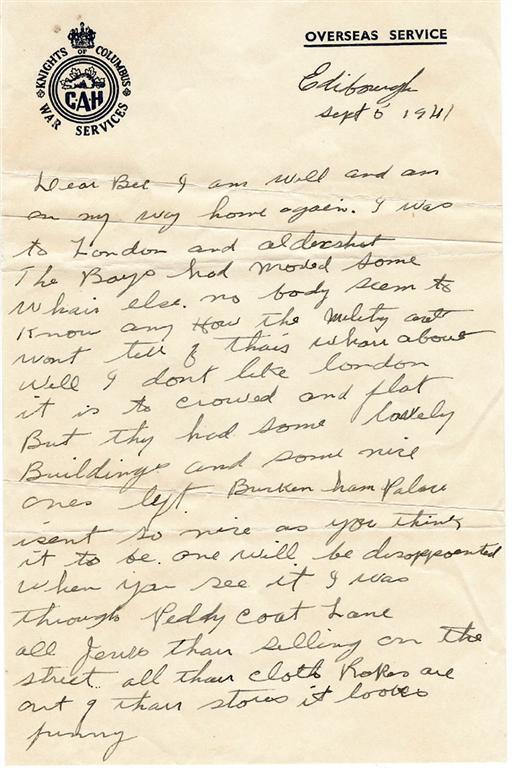 KNIGHTS OF COLUMBUS
CAH
WAR SERVICES
OVERSEAS SERVICE
Ediborough
Sept 6 1941
Dear Bee I am well and am
on my way home again. I was
to London and aldershot
The Boys had moved some
whair else. no body seem to
know any How the
wont tell of thair whair about
Well I dont like london
it is to crowed and flat
But thy had some lovely
Buildings and some nice
ones left Bucken ham Palace
isent so nice as you think
it to be. one will be disappoented
when you see it I was
through Peddy Coat Lane
all Jews thair selling on the
street. all thair cloth are
out of thair stores it looks
funny